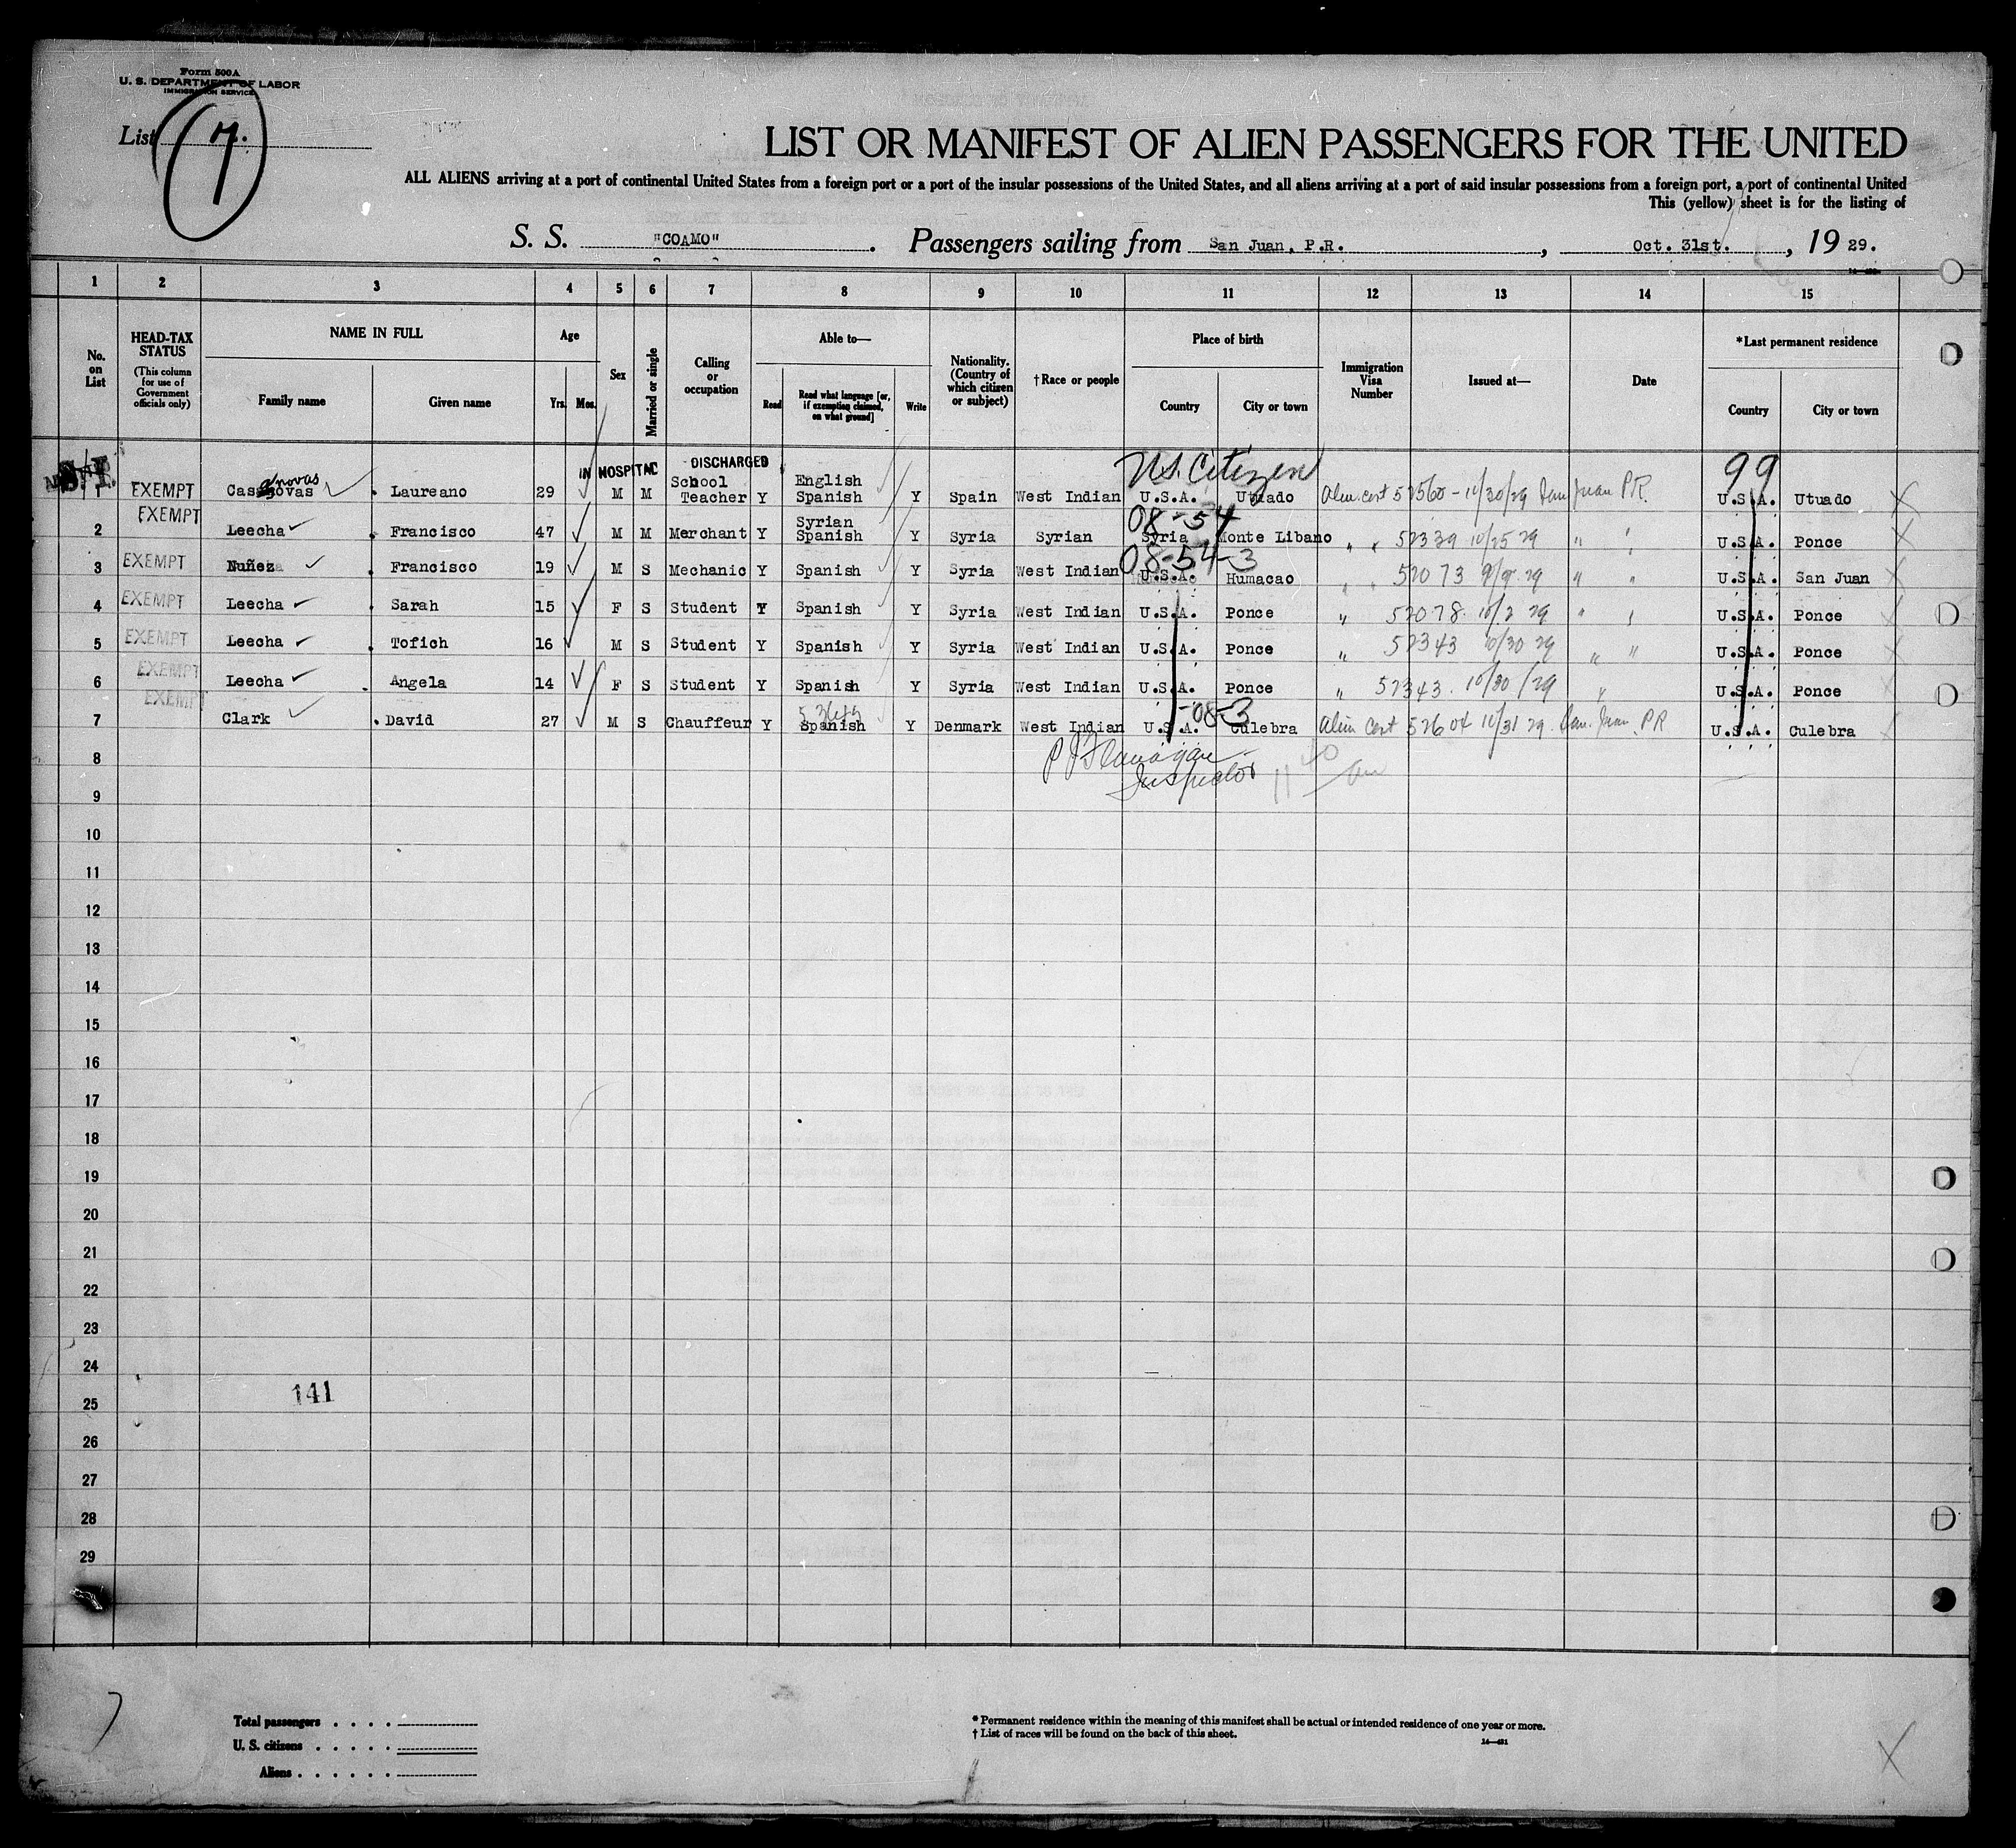 Form 500A
U. S. DEPARTMENT OF LABOR
IMMIGRATION SERVICE
List 7.
LIST OR MANIFEST OF ALIEN PASSENGERS FOR THE UNITED
ALL ALIENS arriving at a port of continental United States from a foreign port or a port of the insular possessions of the United States, and all aliens arriving at a port of said insular possessions from a foreign port, a port of continental United
This (yellow) sheet is for the listing of
S. S. "COAMO". Passengers sailing from San Juan, P.R., Oct. 31st., 19 29.
1 2 3 4 5 6 7 8 9 10 11 12 13 14 15
No. on List
HEAD-TAX STATUS (This column for use of Government officials only)
NAME IN FULL Family name Given name
Age Yrs. Mos.
Sex
Married or single
Calling or occupation
Able to— Read Read what language [or, if exemption claimed, on what ground] Write
Nationality. (Country of which citizen or subject)
†Race or people
Place of birth Country City or town
Immigration Visa Number
Issued at—
Date
*Last permanent residence Country City or town
IN HOSPITAL DISCHARGED U.S. Citizen 99
1 EXEMPT Casanovas Laureano 29 M M School Teacher Y English Spanish Y Spain West Indian U.S.A. Utuado 10/30/29 San Juan P.R. U.S.A. Utuado
08-54
2 EXEMPT Leecha Francisco 47 M M Merchant Y Syrian Spanish Y Syria Syrian Syria Monte Libano " " 52339 10/25 29 " " U.S.A. Ponce
08-54-3
3 EXEMPT Nuñez Francisco 19 M S Mechanic Y Spanish Y Syria West Indian U.S.A. Humacao " " 52073 29 " " U.S.A. San Juan
4 EXEMPT Leecha Sarah 15 F S Student Y Spanish Y Syria West Indian U.S.A. Ponce " 52078 10/2 29 " " U.S.A. Ponce
5 EXEMPT Leecha Tofich 16 M S Student Y Spanish Y Syria West Indian U.S.A. Ponce " 52343 10/30 29 " " U.S.A. Ponce
6 EXEMPT Leecha Angela 14 F S Student Y Spanish Y Syria West Indian U.S.A. Ponce " 52343 10/30/29 " U.S.A. Ponce
-08-3
7 EXEMPT Clark David 27 M S Chauffeur Y Spanish Y Denmark West Indian U.S.A. Culebra Alien Cert 52604 10/31 29 San Juan P.R U.S.A. Culebra
8 P J Flanagan
Inspector
9
10
11
12
13
14
15
16
17
18
19
20
21
22
23
24
141
25
26
27
28
29
Total passengers . . . .
U. S. citizens . . . . .
Aliens . . . . . .
* Permanent residence within the meaning of this manifest shall be actual or intended residence of one year or more.
† List of races will be found on the back of this sheet.
14—481